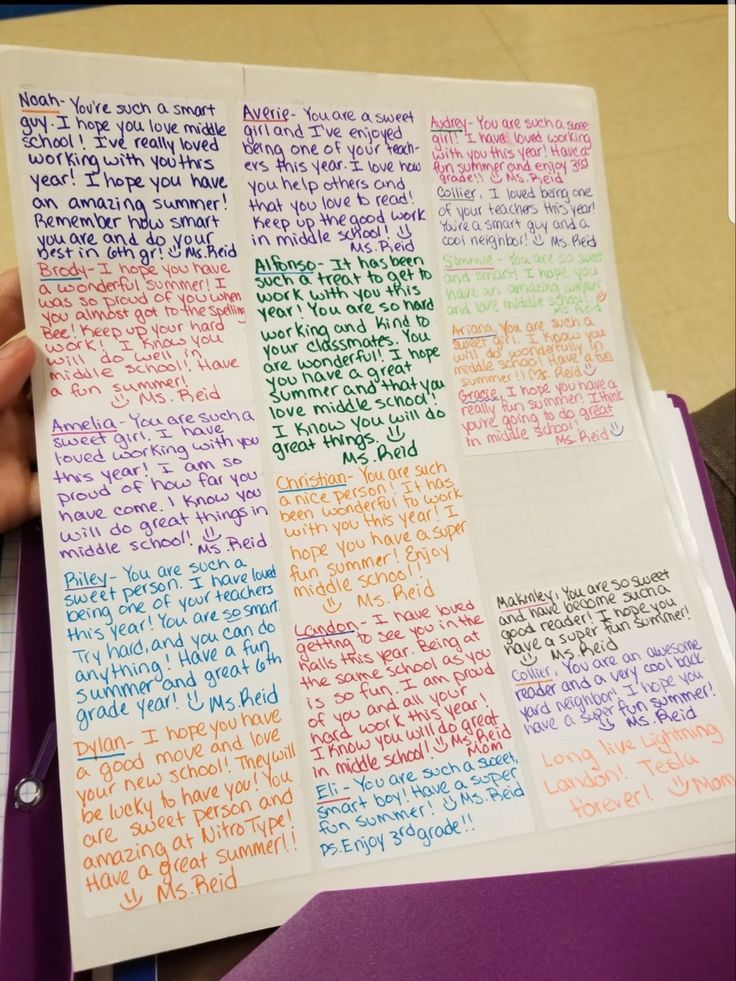 Noah- You're such a smart
guy. I hope you love middle
school! I've really loved
working with you this
year! I hope you have
an amazing summer!
Remember how smart
you are and do your
best in 6th gr! Ms. Reid
Brody- I hope you have
a wonderful summer! I
was so proud of you when
you almost got to the Spelling
Bee! Keep up your hard
work! I know you
will do well in
middle school! Have
a fun summer!
Ms. Reid
Amelia- You are such a
sweet girl. I have
loved working with you
this year! I am so
proud of how far you
have come. I know you
will do great things in
middle school! Ms. Reid
Riley- You are such a
sweet person. I have loved
being one of your teachers
this year! You are so smart.
Try hard, and you can do
anything! Have a fun
summer and great 6th
grade year! Ms. Reid
Dylan- I hope you have
a good move and love
your new school! They will
be lucky to have you! You
are sweet person and
amazing at NitroType!
Have a great summer!!
Ms. Reid
Averie- You are a sweet
girl and I've enjoyed
being one of your teach-
ers this year. I love how
you help others and
that you love to read!
Keep up the good work
in middle school!
Ms. Reid
Alfonso- It has been
such a treat to get to
work with you this
year! You are so hard
working and kind to
your classmates. You
are wonderful! I hope
you have a great
summer and that you
love middle school!
I know you will do
great things.
Ms. Reid
Christian- You are such
a nice person! It has
been wonderful to work
with you this year! I
hope you have a super
fun summer! Enjoy
middle school!
Ms. Reid
Landon- I have loved
getting to see you in the
halls this year. Being at
the same school as you
is so fun. I am proud
of you and all your
hard work this year!
I know you will do great
in middle school! Ms. Reid
Mom
Eli- You are such a sweet,
smart boy! Have a super
fun summer! Ms. Reid
PS. Enjoy 3rd grade!!
Audrey- You are such a sweet
girl! I have loved working
with you this year! Have a
fun summer and enjoy 3rd
grade!! Ms. Reid
Collier, I loved being one
of your teachers this year!
You're a smart guy and a
cool neighbor! Ms. Reid
Simmie- You are so sweet
and smart! I hope you
have an amazing summer
and love middle school!
Ms. Reid
Ariana, You are such a
sweet girl. I know you
will do wonderfully in
middle school. Have a fun
summer!! Ms. Reid
Gracie, I hope you have a
really fun summer! I think
you're going to do great
in middle school!
Ms. Reid
Makinley, You are so sweet
and have become such a
good reader! I hope you
have a super fun summer!
Ms. Reid
Collier, You are an awesome
reader and a very cool back-
yard neighbor! I hope you
have a super fun summer!
Ms. Reid
Long live Lightning
Landon! Tesla
forever! Mom